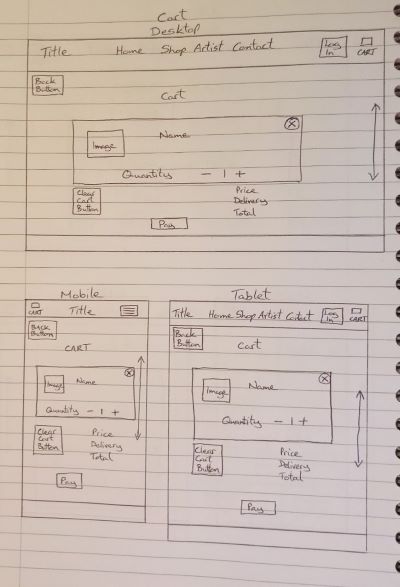 Cart
Desktop
Title Home Shop Artist Contact Log In CART
Back Button
Cart
Name
Image
Quantity - 1 +
Clear Cart Button
Price
Delivery
Total
Pay
Mobile
CART Title
Back Button
CART
Name
Image
Quantity - 1 +
Clear Cart Button
Price
Delivery
Total
Pay
Tablet
Title Home Shop Artist Contact Log In CART
Back Button
Cart
Name
Image
Quantity - 1 +
Clear Cart Button
Price
Delivery
Total
Pay